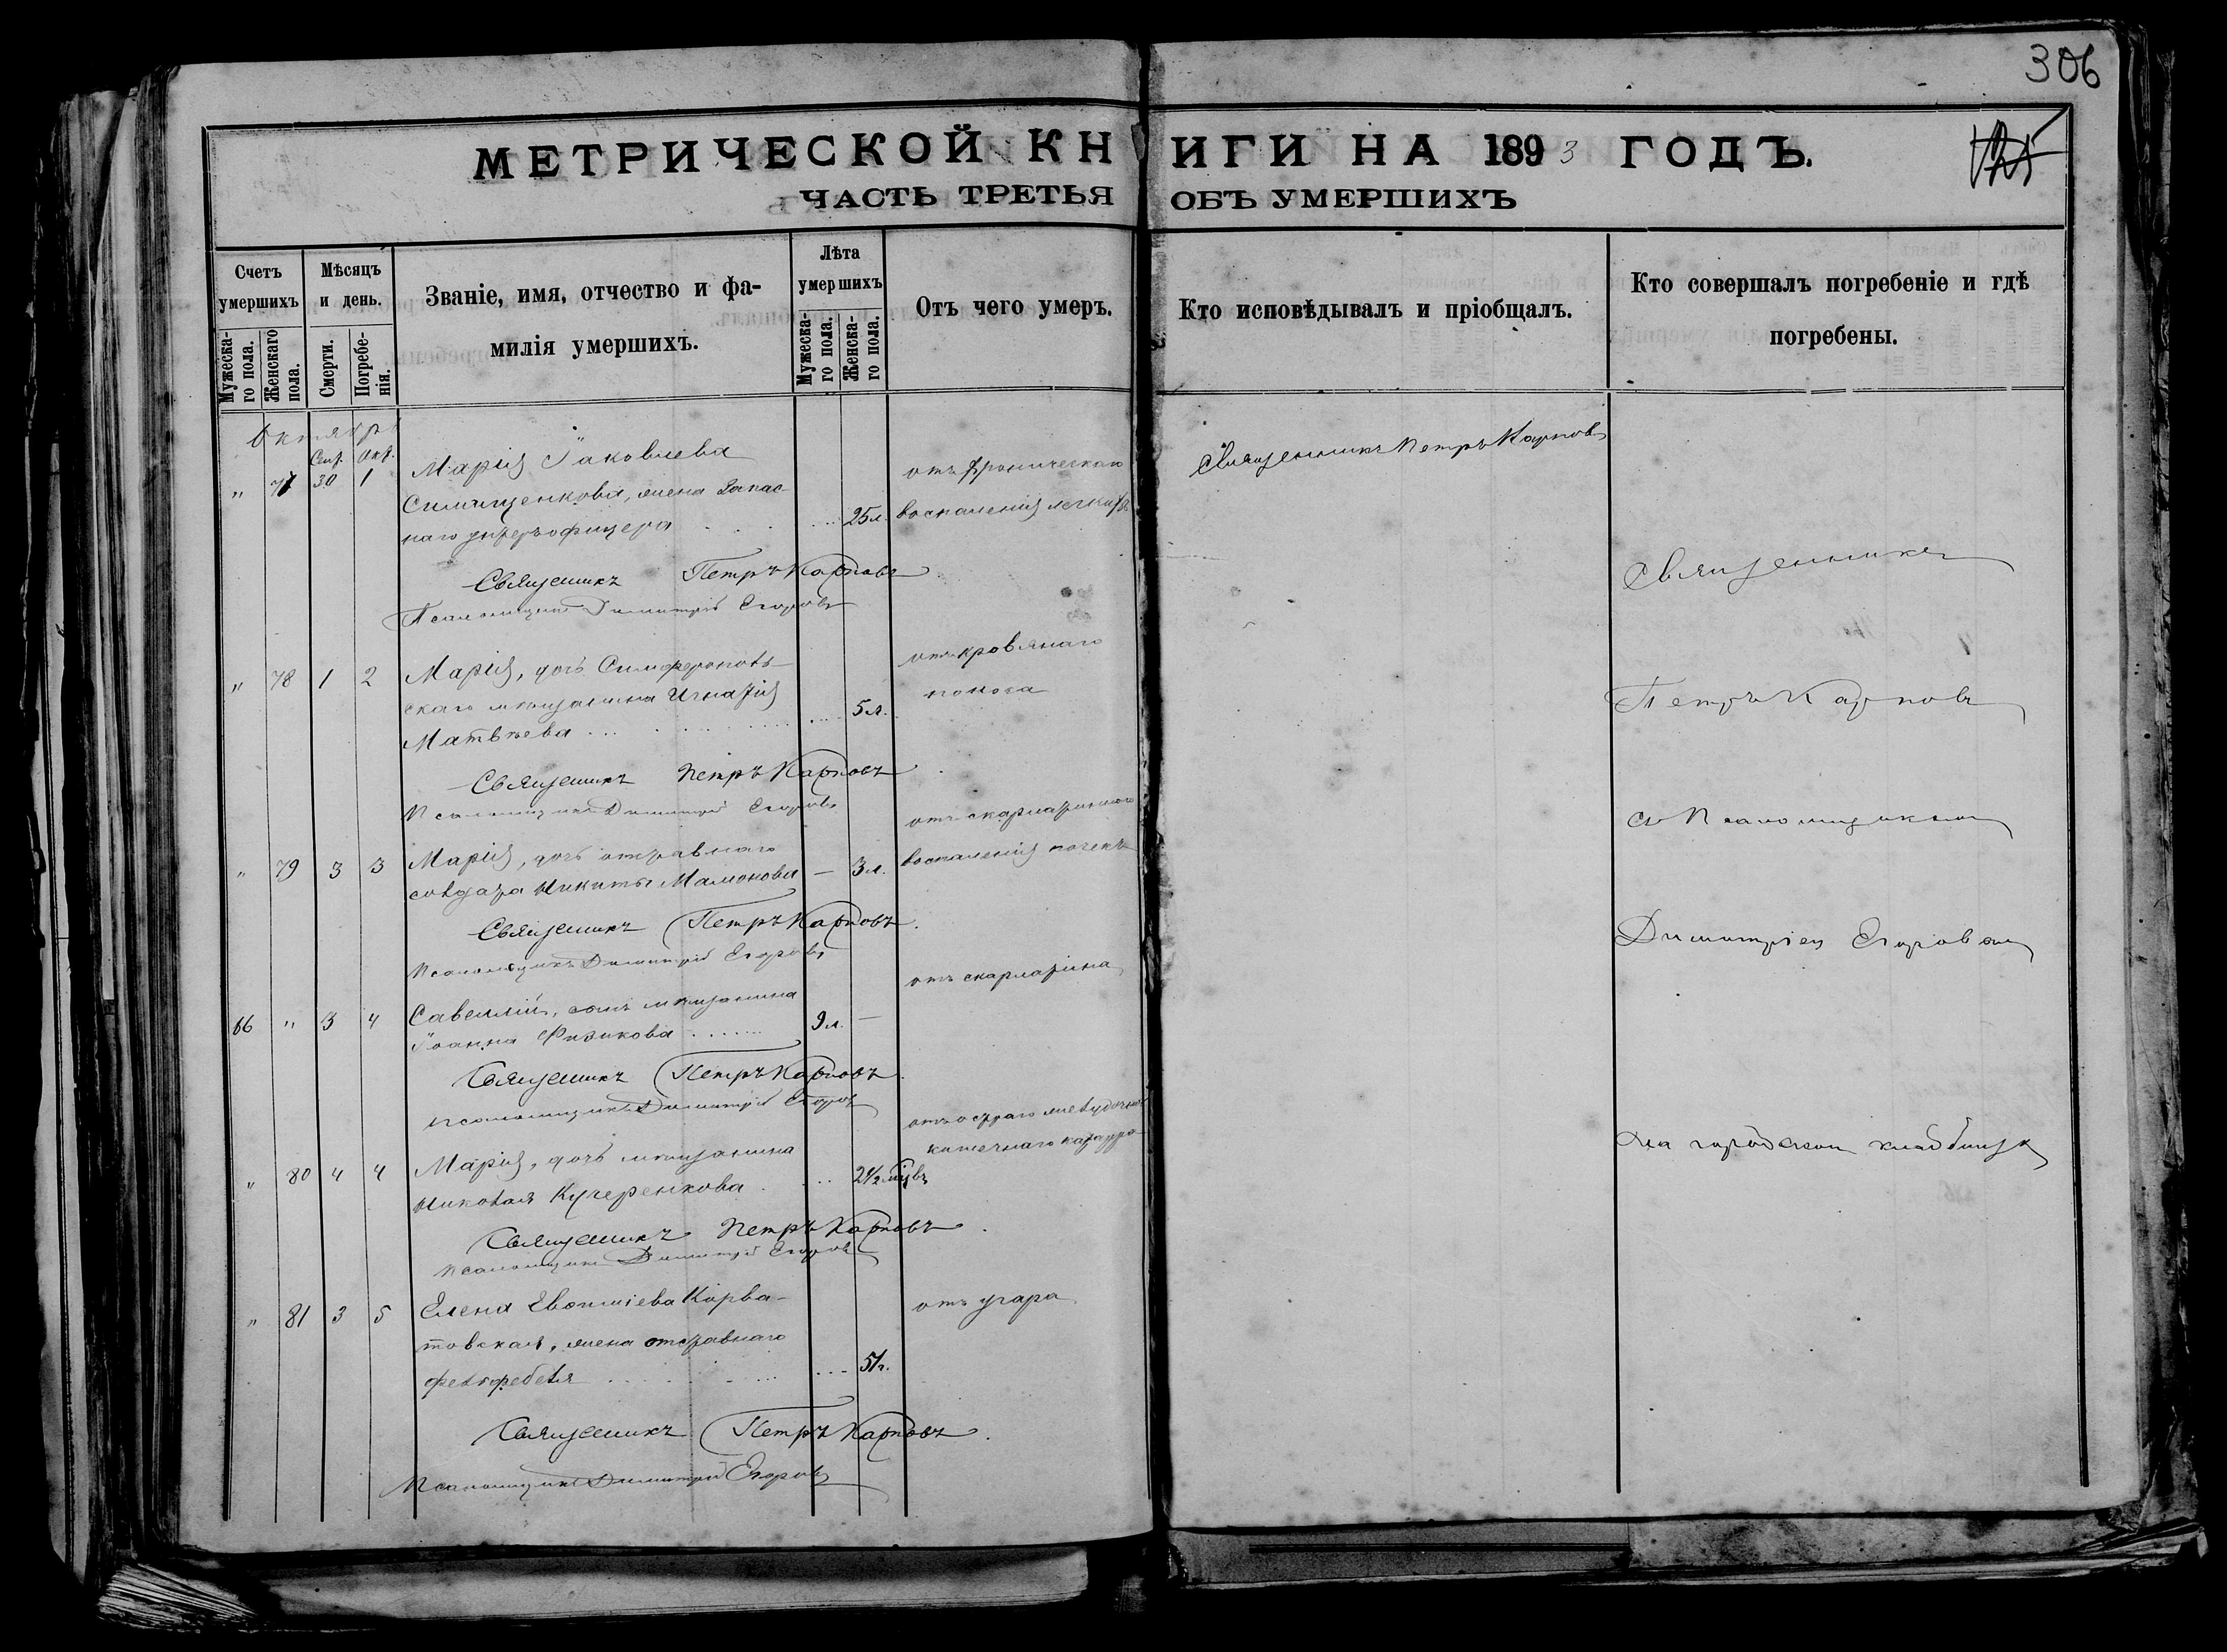 306
МЕТРИЧЕСКОЙ КНИГИ НА 1893 ГОДЪ.
ЧАСТЬ ТРЕТЬЯ ОБЪ УМЕРШИХЪ
Счетъ умершихъ
Мужеска-го пола.
Женскаго пола.
Мѣсяцъ и день.
Смерти.
Погребе-нія.
Званіе, имя, отчество и фа-
милія умершихъ.
Лѣта умершихъ
Мужеска-го пола.
Женска-го пола.
Отъ чего умеръ.
Кто исповѣдывалъ и пріобщалъ.
Кто совершалъ погребеніе и гдѣ
погребены.
Октябрь
Сент. Окт.
" 77 30 1 Марія Іаковлева
жена запас-
наго унтеръофицера 25 л.
отъ хроническаго
воспаленія легкихъ
Священникъ Петръ Карповъ
Священникъ Петръ Карповъ
Псаломщикъ Димитрій Егоровъ
" 78 1 2 Марія, дочь Симферополь-
скаго мѣщанина Игнатія
Матвѣева 5 л.
отъ кроваваго
поноса
Священникъ Петръ Карповъ
Псаломщикъ Димитрій Егоровъ
" 79 3 3 Марія, дочь отставнаго
солдата Никиты Мамонова — 3 л.
отъ скарлатиннаго
воспаленія почекъ
Священникъ Петръ Карповъ
Псаломщикъ Димитрій Егоровъ
66 " 3 4 Савеллій, сынъ мѣщанина
Іоанна Физикова 9 л. —
отъ скарлатина
Священникъ Петръ Карповъ
Псаломщикъ Димитрій Егоровъ
" 80 4 4 Марія, дочь мѣщанина
Николая Кучеренкова 2½ мцвъ
отъ остраго желудочно
кишечнаго катарра
Священникъ Петръ Карповъ
Псаломщикъ Димитрій Егоровъ
" 81 3 5 Елена Корва-
товская, жена отставнаго
фельдфебеля 51 г.
отъ угара
Священникъ Петръ Карповъ
Псаломщикъ Димитрій Егоровъ
Священникъ
Петръ Карповъ
съ Псаломщикомъ
Димитріемъ Егоровымъ
на городскомъ кладбищѣ